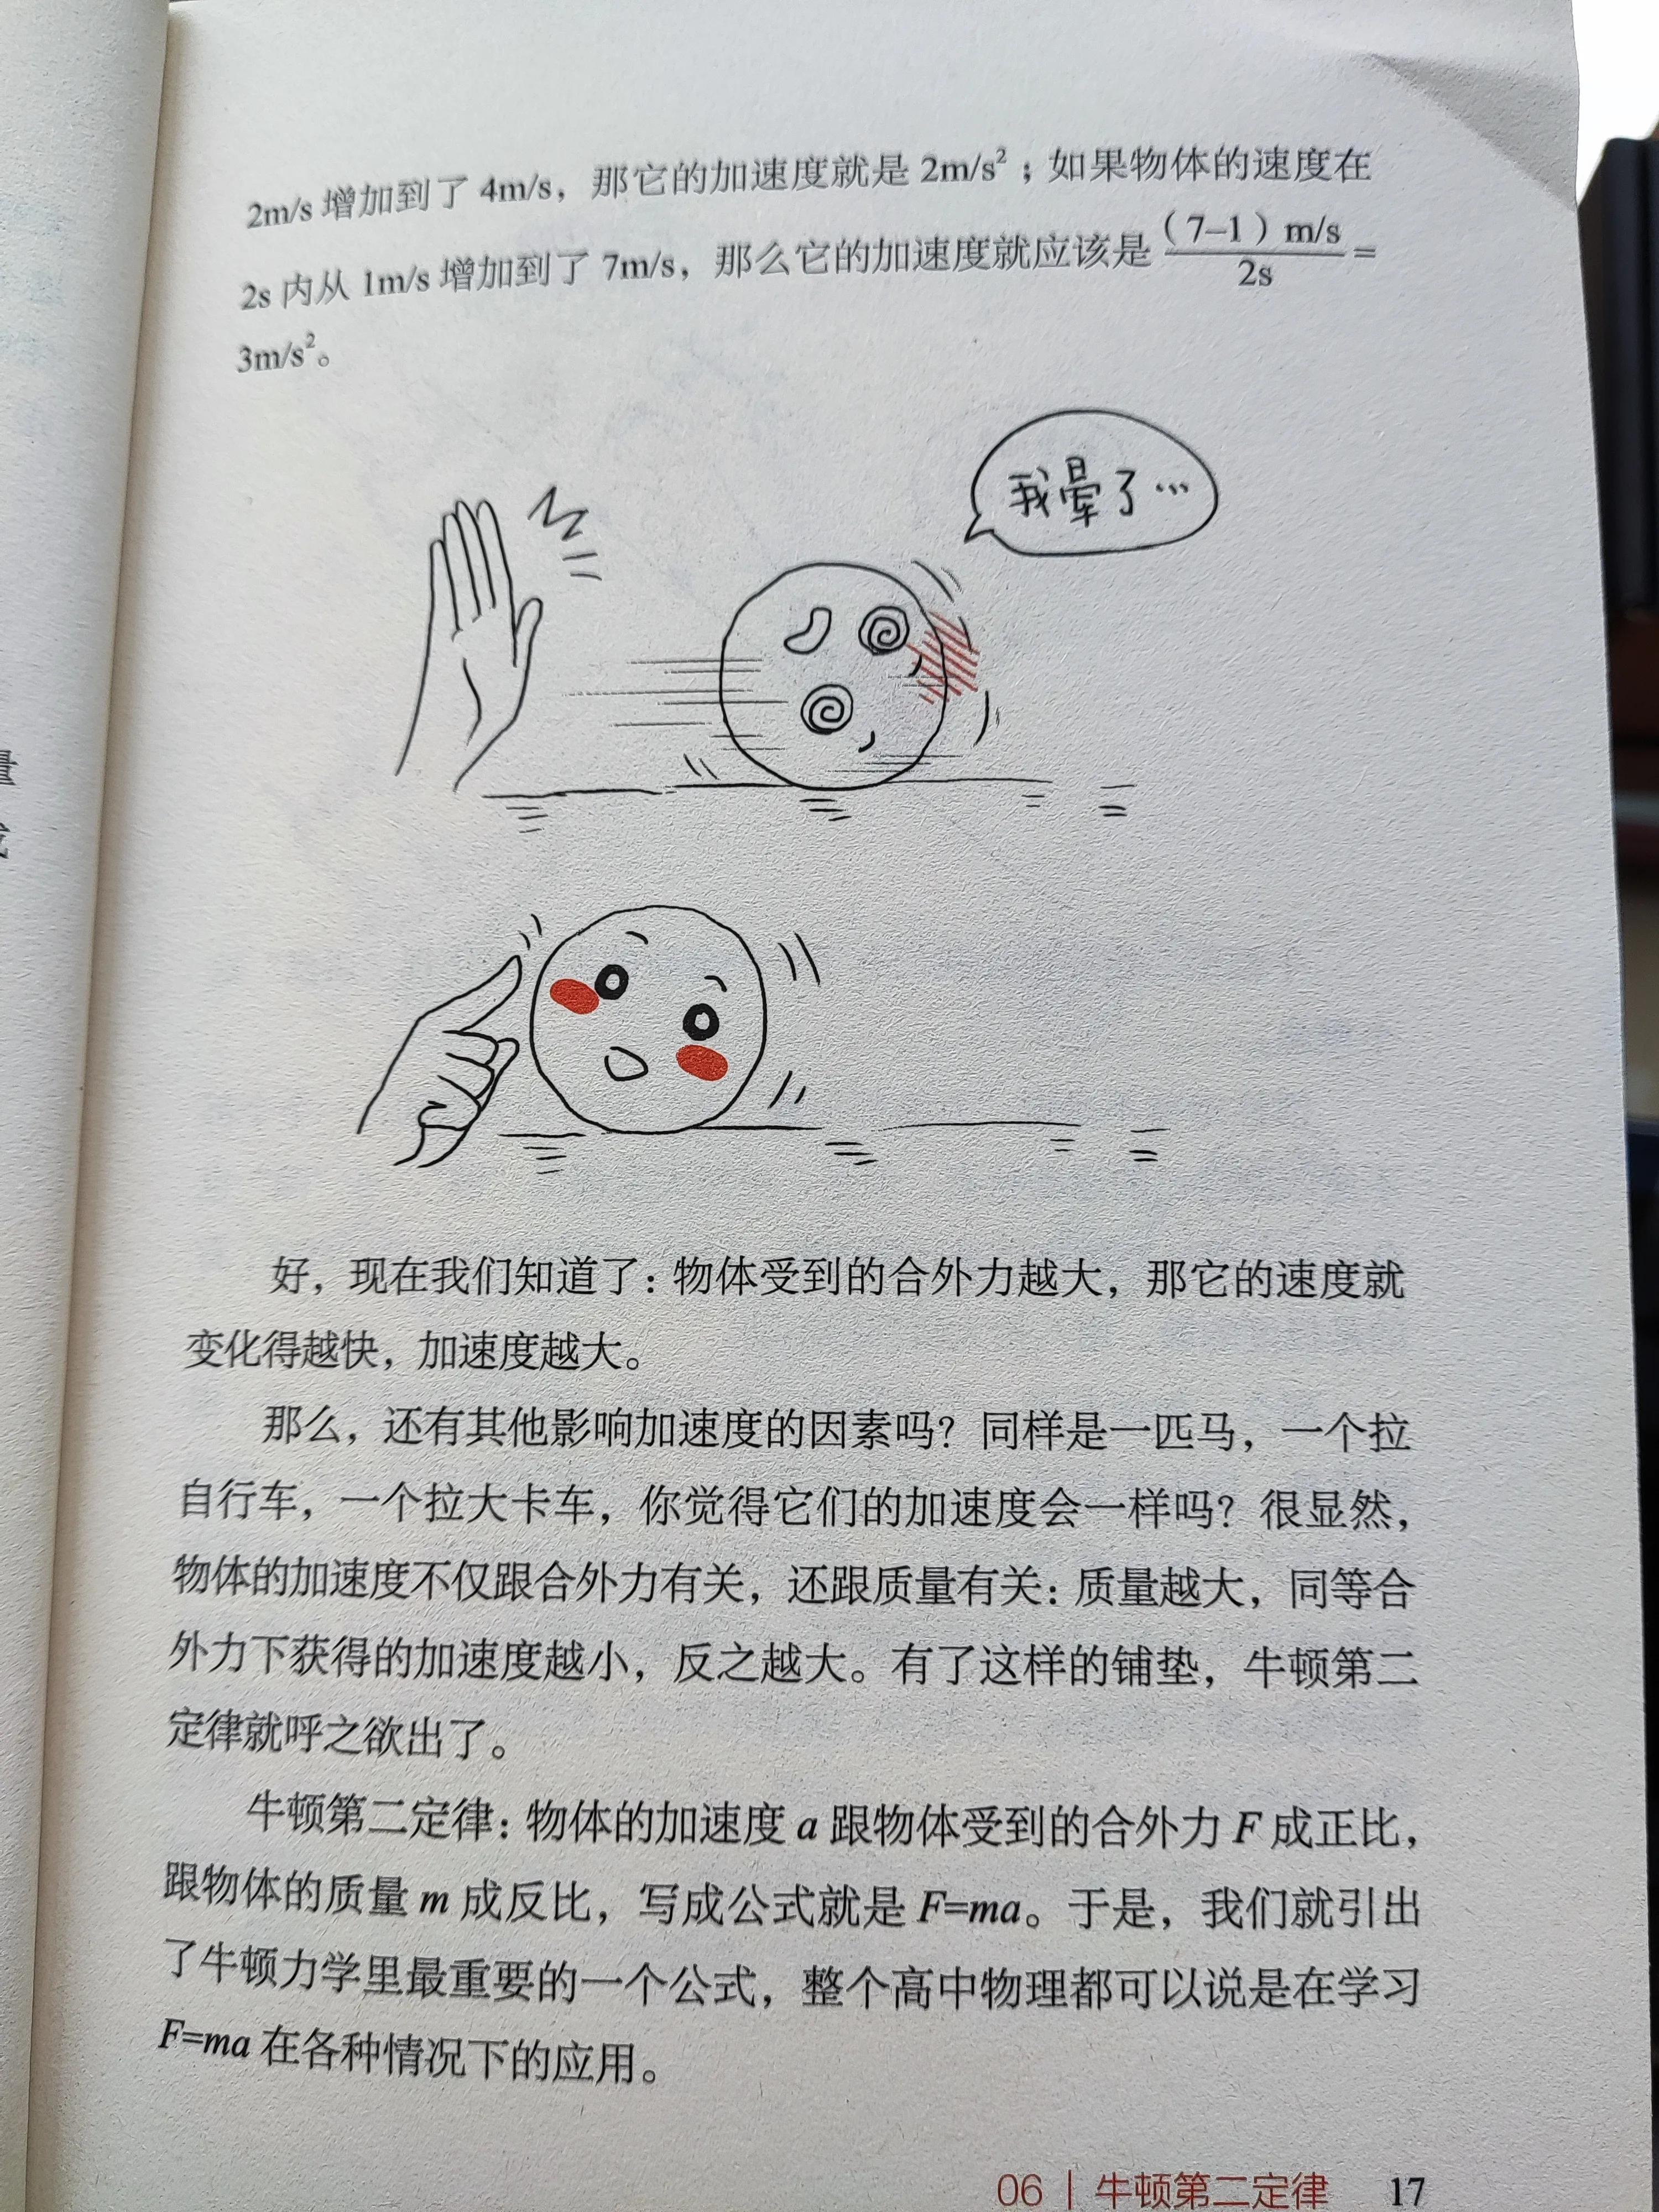 2m/s 增加到了 4m/s，那它的加速度就是 2m/s²；如果物体的速度在
2s 内从 1m/s 增加到了 7m/s，那么它的加速度就应该是 (7–1) m/s / 2s =
3m/s²。
我晕了…
好，现在我们知道了：物体受到的合外力越大，那它的速度就
变化得越快，加速度越大。
那么，还有其他影响加速度的因素吗？同样是一匹马，一个拉
自行车，一个拉大卡车，你觉得它们的加速度会一样吗？很显然，
物体的加速度不仅跟合外力有关，还跟质量有关：质量越大，同等合
外力下获得的加速度越小，反之越大。有了这样的铺垫，牛顿第二
定律就呼之欲出了。
牛顿第二定律：物体的加速度 a 跟物体受到的合外力 F 成正比，
跟物体的质量 m 成反比，写成公式就是 F=ma。于是，我们就引出
了牛顿力学里最重要的一个公式，整个高中物理都可以说是在学习
F=ma 在各种情况下的应用。
06 | 牛顿第二定律 17